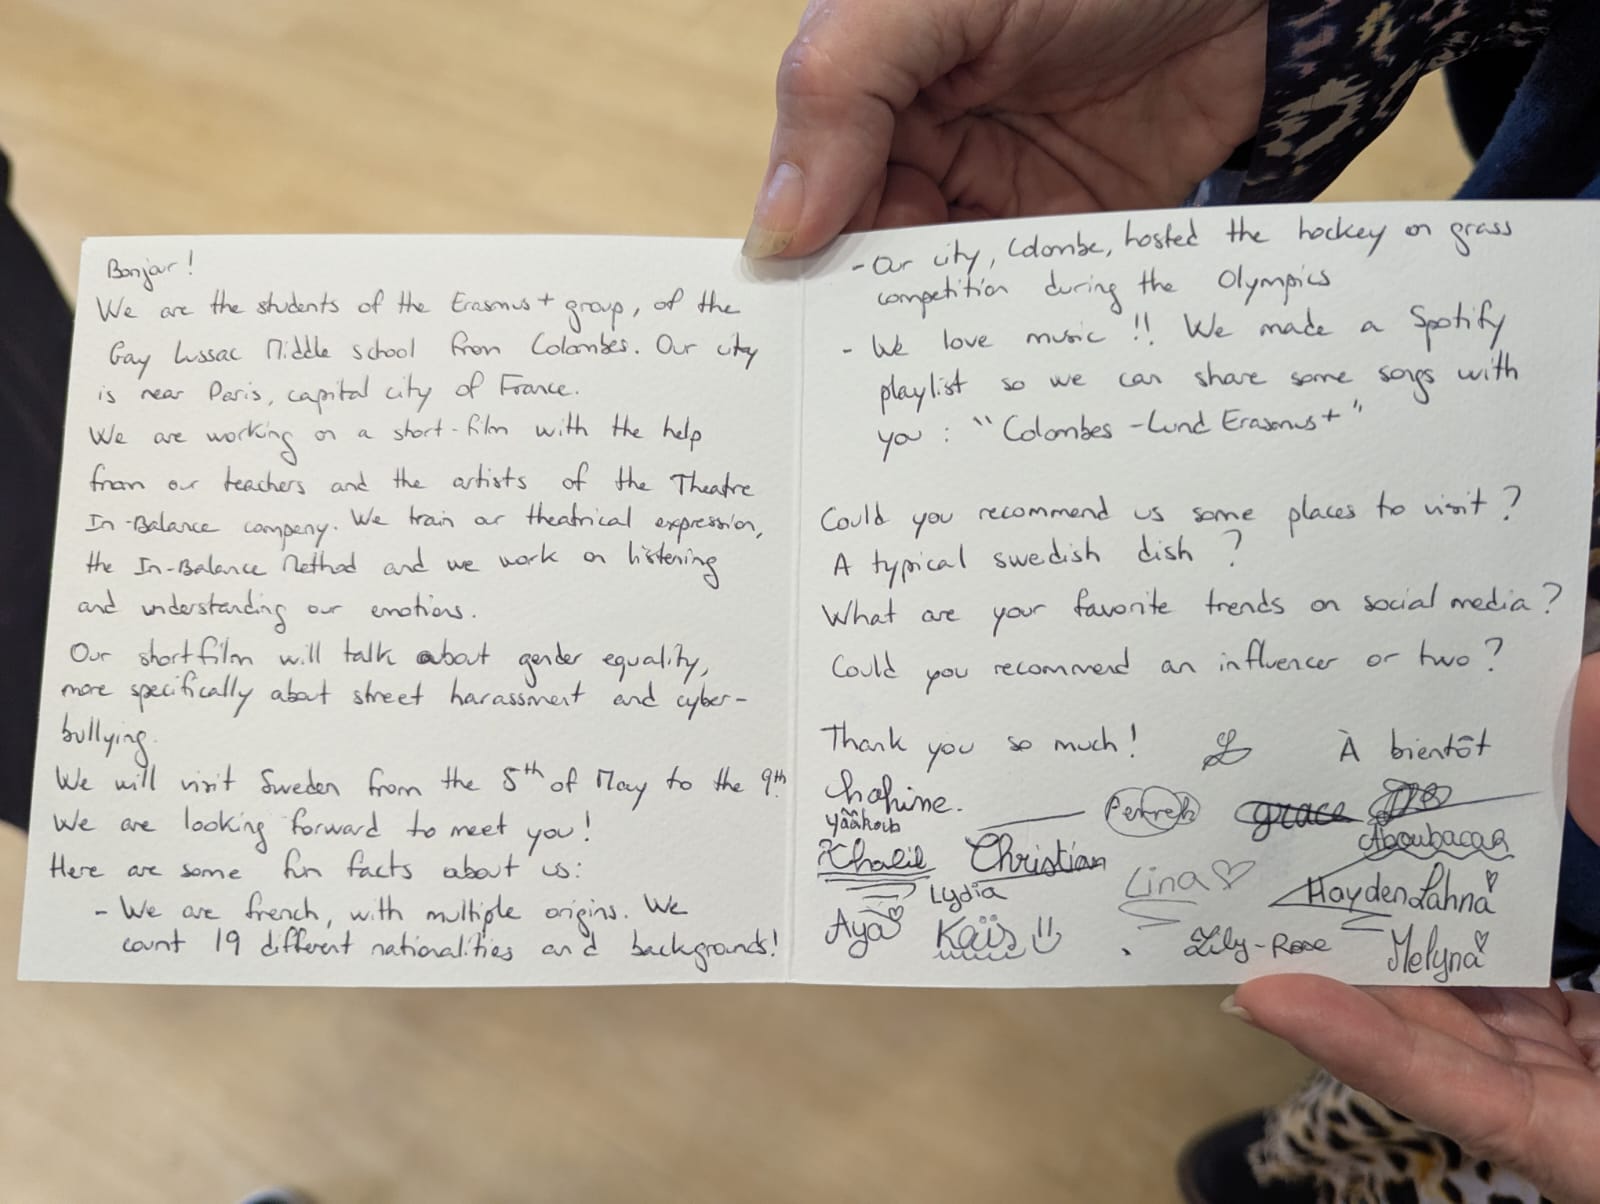 Bonjour!
We are the students of the Erasmus+ group, of the
Gay Lussac Middle school from Colombes. Our city
is near Paris, capital city of France.
We are working on a short-film with the help
from our teachers and the artists of the Theatre
In-Balance company. We train our theatrical expression,
the In-Balance Method and we work on listening
and understanding our emotions.
Our shortfilm will talk about gender equality,
more specifically about street harassment and cyber-
bullying.
We will visit Sweden from the 5th of May to the 9th.
We are looking forward to meet you!
Here are some fun facts about us:
- We are french, with multiple origins. We
count 19 different nationalities and backgrounds!
- Our city, Colombe, hosted the hockey on grass
competition during the Olympics
- We love music!! We made a Spotify
playlist so we can share some songs with
you: "Colombes-Lund Erasmus+"
Could you recommend us some places to visit?
A typical swedish dish?
What are your favorite trends on social media?
Could you recommend an influencer or two?
Thank you so much! À bientôt
grace
Aboubacar
Khalil Christian
Lina
Lydia
Hayden Lahna
Aya Kaïs
Lily-Rose
Melyna